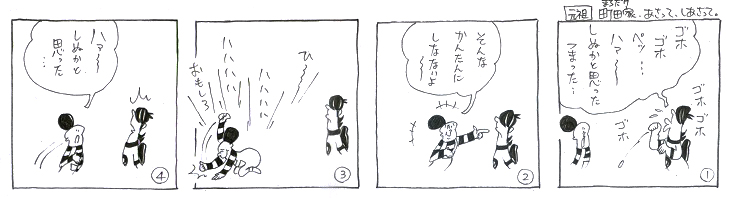 元祖
まちだけ
町田家、あさって、しあさって。
ゴホ
ゴホ
ペッ…
ハァ〜
しぬかと思った
つまった…
ゴホ
ゴホ
ゴホ
①
そんな
かんたんに
しなないよ
〜
②
ひ〜〜
ハハハハ
ハハハハ
ハハハハ
おもしろ
③
ハァ〜
しぬかと
思った
…
④